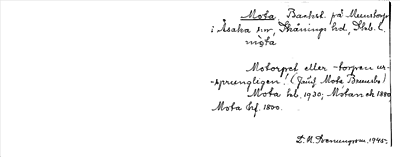 Mota Backst. på Munstorp
i Åsaka sn, Skånings hd, Skb. l.
mòta
Motorpet eller -torpen ur-
sprungligen! (Jämf Mota Brunsbo)
Mota hb. 1930; Motan ek 1880
Mota hf. 1800.
D. N. Svenungsson. 1945.